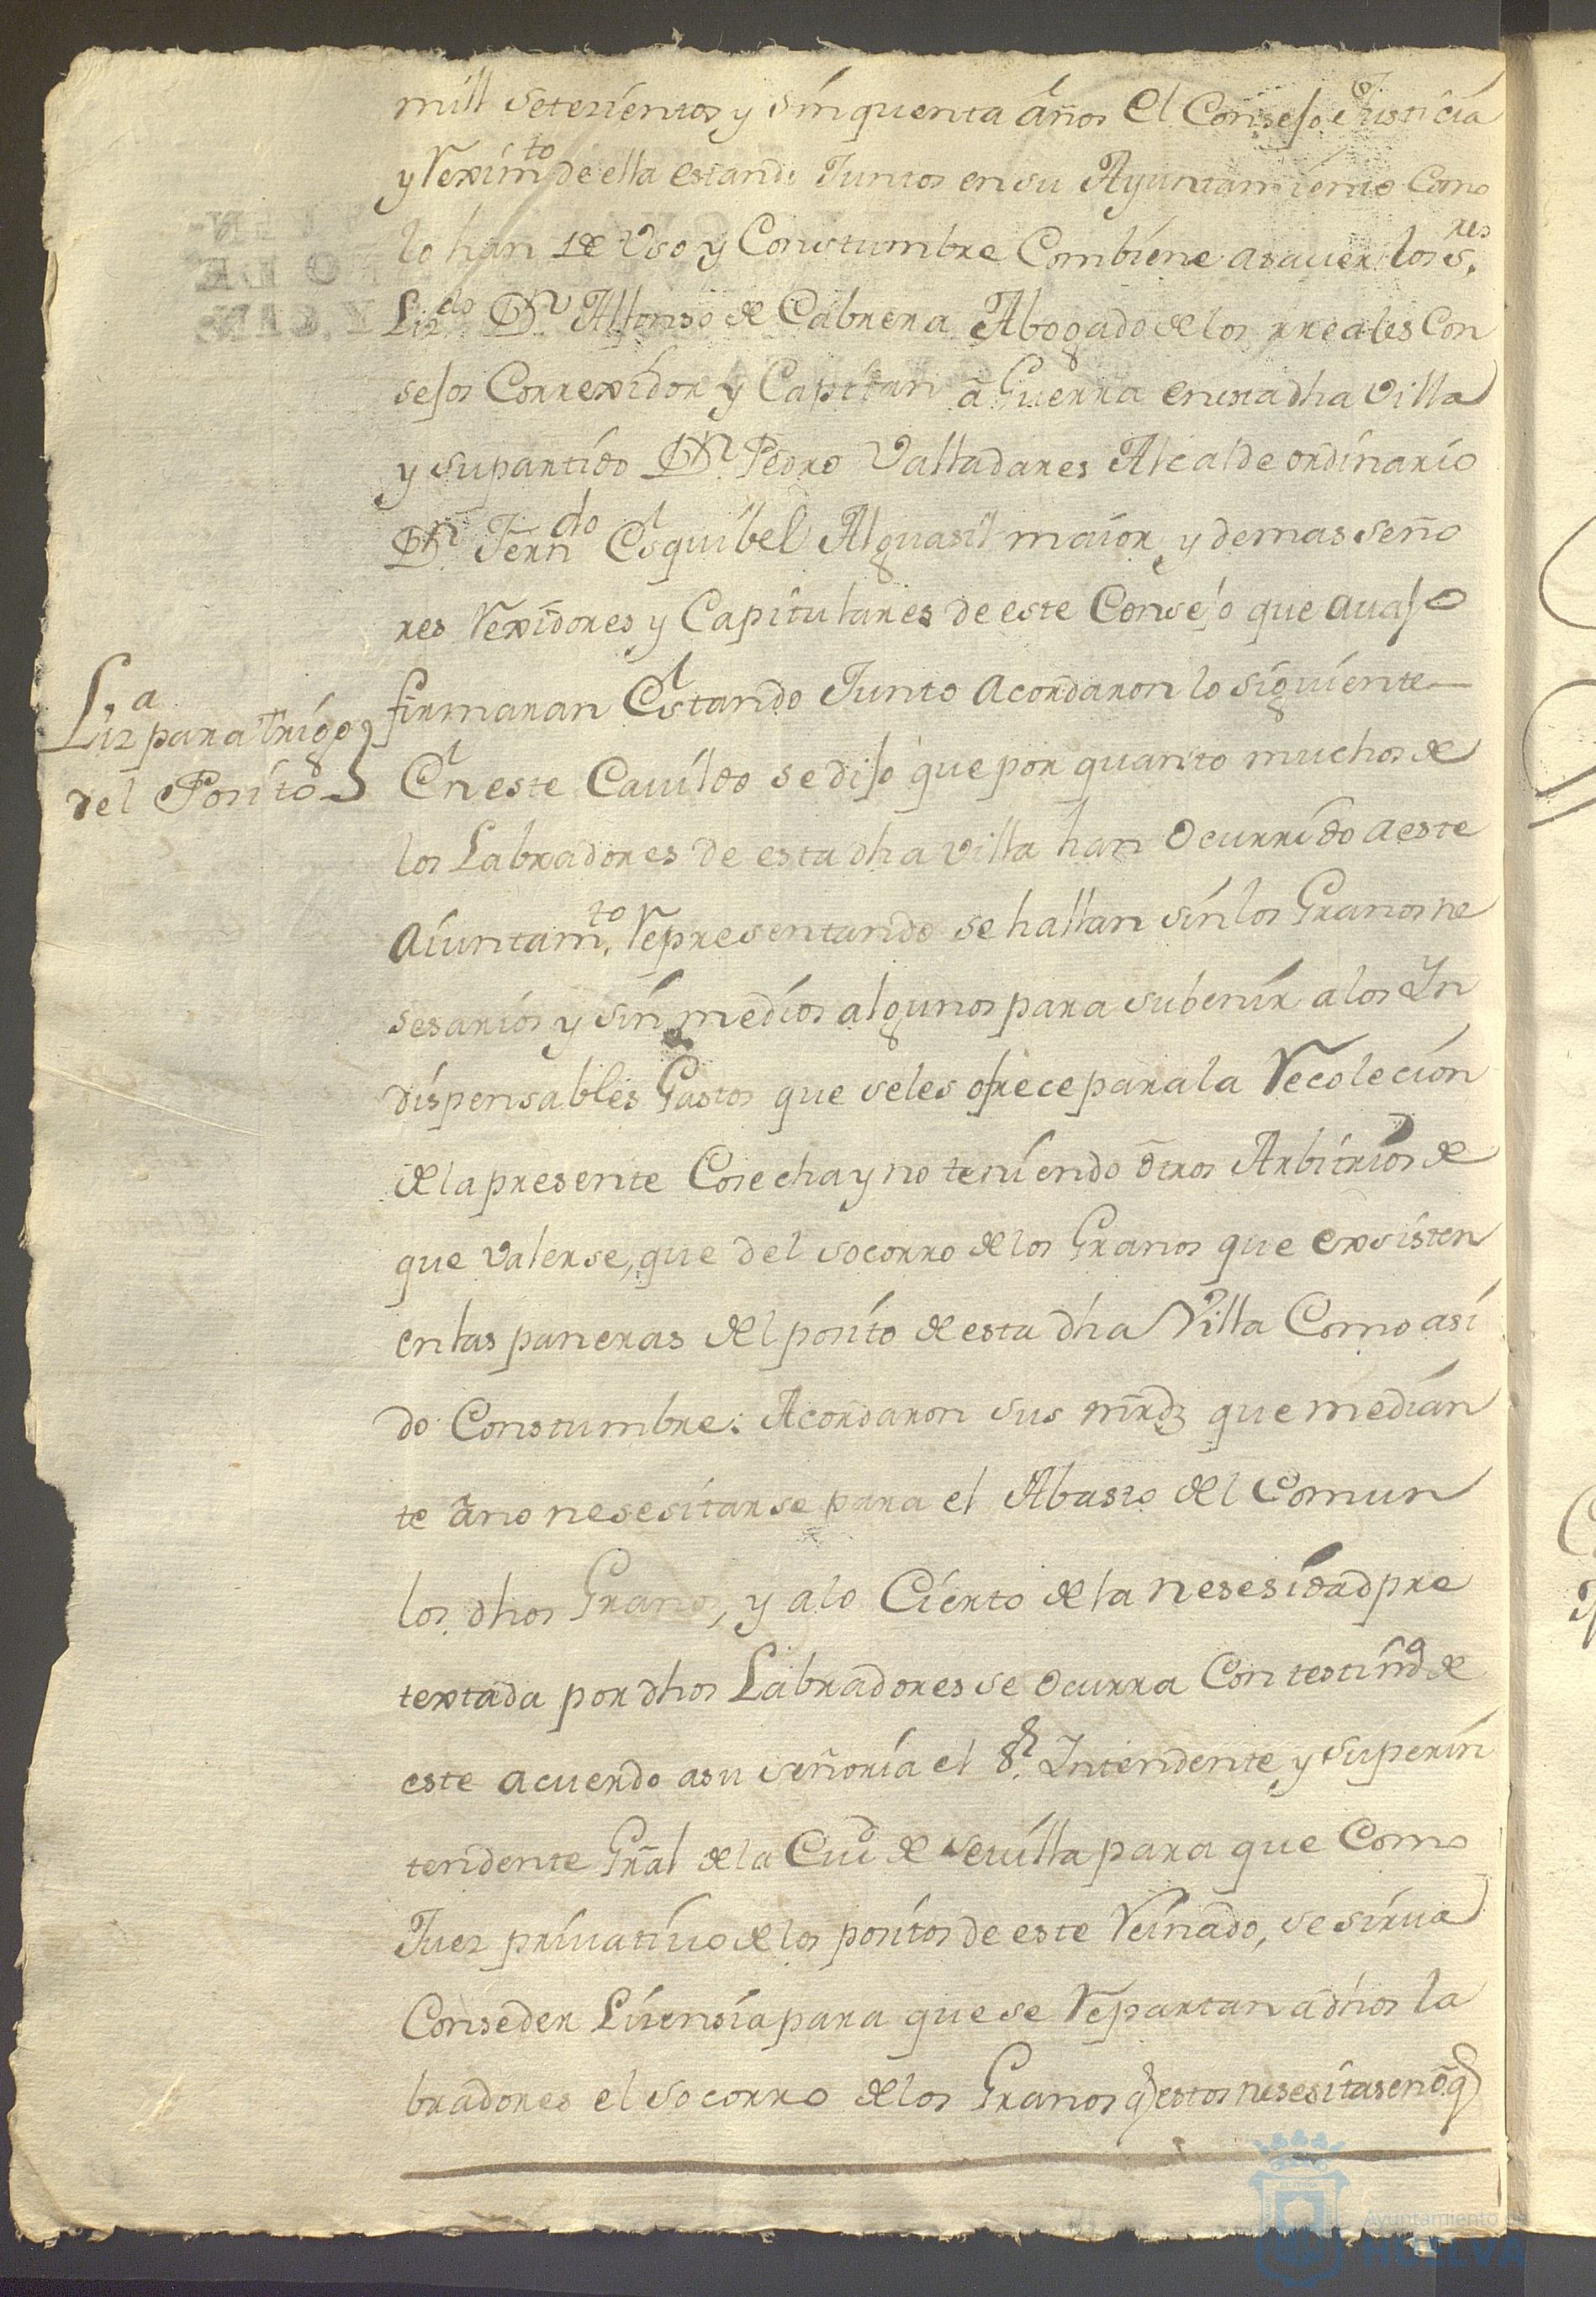 mill setesientos y sinquenta años el Consejo Justicia
y Reximto de ella estando Juntos en su Ayuntamiento Como
lo han de Uso y Constumbre Combiene asauer los Sres
Lizdo Dn Alfonso de Cabrera Abogado de los rreales Con
sejos Correxidor y Capitan á Guerra en esta dha Villa
y su partido Dn Pedro Valladares Alcalde ordinario
Dn Ferndo Esquibel Alguasil maior y demas seño
res Rexidores y Capitulares de este Consejo que auajo
firmaran Estando Junto acordaron lo siguiente
Liza para trigo
del Posito
En este Cauildo se dijo que por quanto muchos de
los Labradores de esta dha villa han Ocurrido a este
Aiuntamto Representando se hallan sin los Granos ne
sesarios y sin medios algunos para subenir a los In
dispensables Gastos que se les ofrece para la Recolecion
de la presente Cosecha y no teniendo otros Arbitrios de
que Valerse, que del socorro de los Granos que exsisten
en las paneras del posito de esta dha Villa Como asi
do Constumbre: Acordaron sus mrds que median
te âno nesesitarse para el Abasto del Comun
los dhos Granos, y a lo Cierto de la nesesidad pre
textada por dhos Labradores se Ocurra Con testimo de
este acuerdo a su señoria el Sr Intendente y superin
tendente Gral de la Ciud de Seuilla para que Como
Juez priuatiuo de los positos de este Reinado, se sirua
Conseder Lisensia para que se Repartan a dhos la
bradores el socorro de los Granos q estos nesesitasen o q
Ayuntamiento de
HUELVA